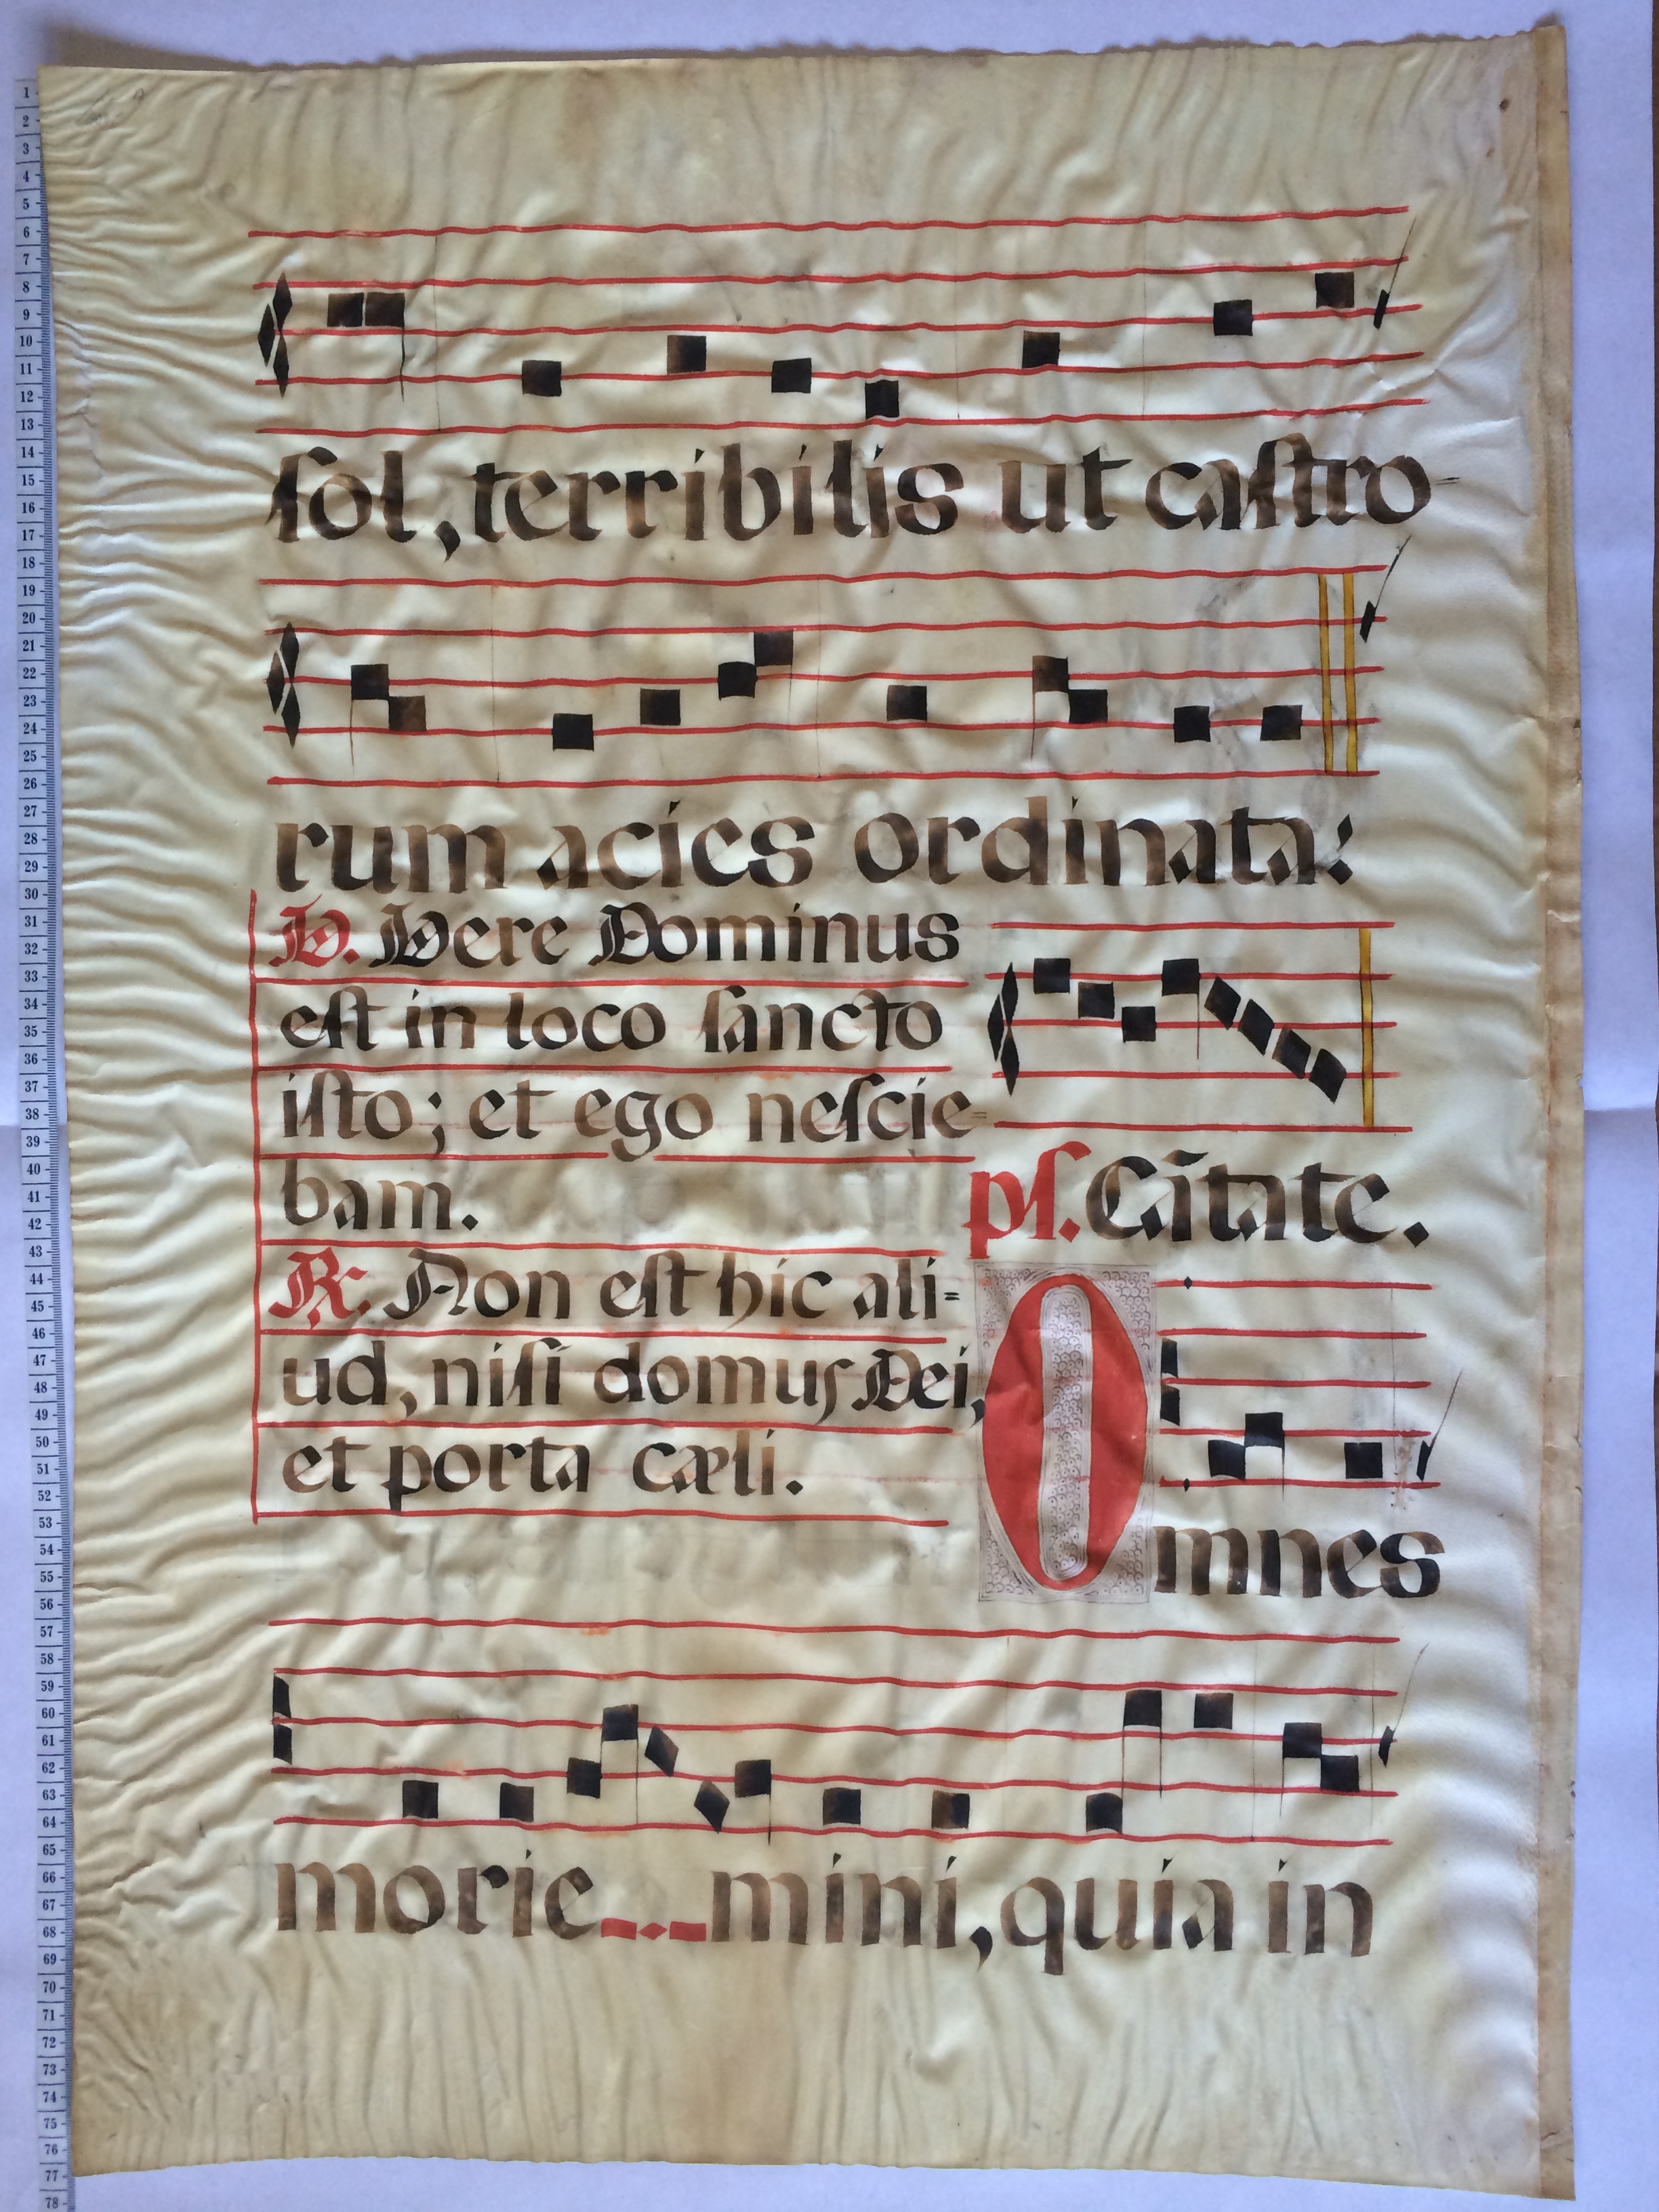 ſol, terribilis ut caſtro-
rum acies ordinata:
V. Vere Dominus
eſt in loco ſancto
iſto; et ego neſcie=
bam.
pſ. Cātate.
R. Non eſt hic ali=
ud, niſi domus Dei,
et porta cæli.
Omnes
morie mini, quia in
1
2
3
4
5
6
7
8
9
10
11
12
13
14
15
16
17
18
19
20
21
22
23
24
25
26
27
28
29
30
31
32
33
34
35
36
37
38
39
40
41
42
43
44
45
46
47
48
49
50
51
52
53
54
55
56
57
58
59
60
61
62
63
64
65
66
67
68
69
70
71
72
73
74
75
76
77
78